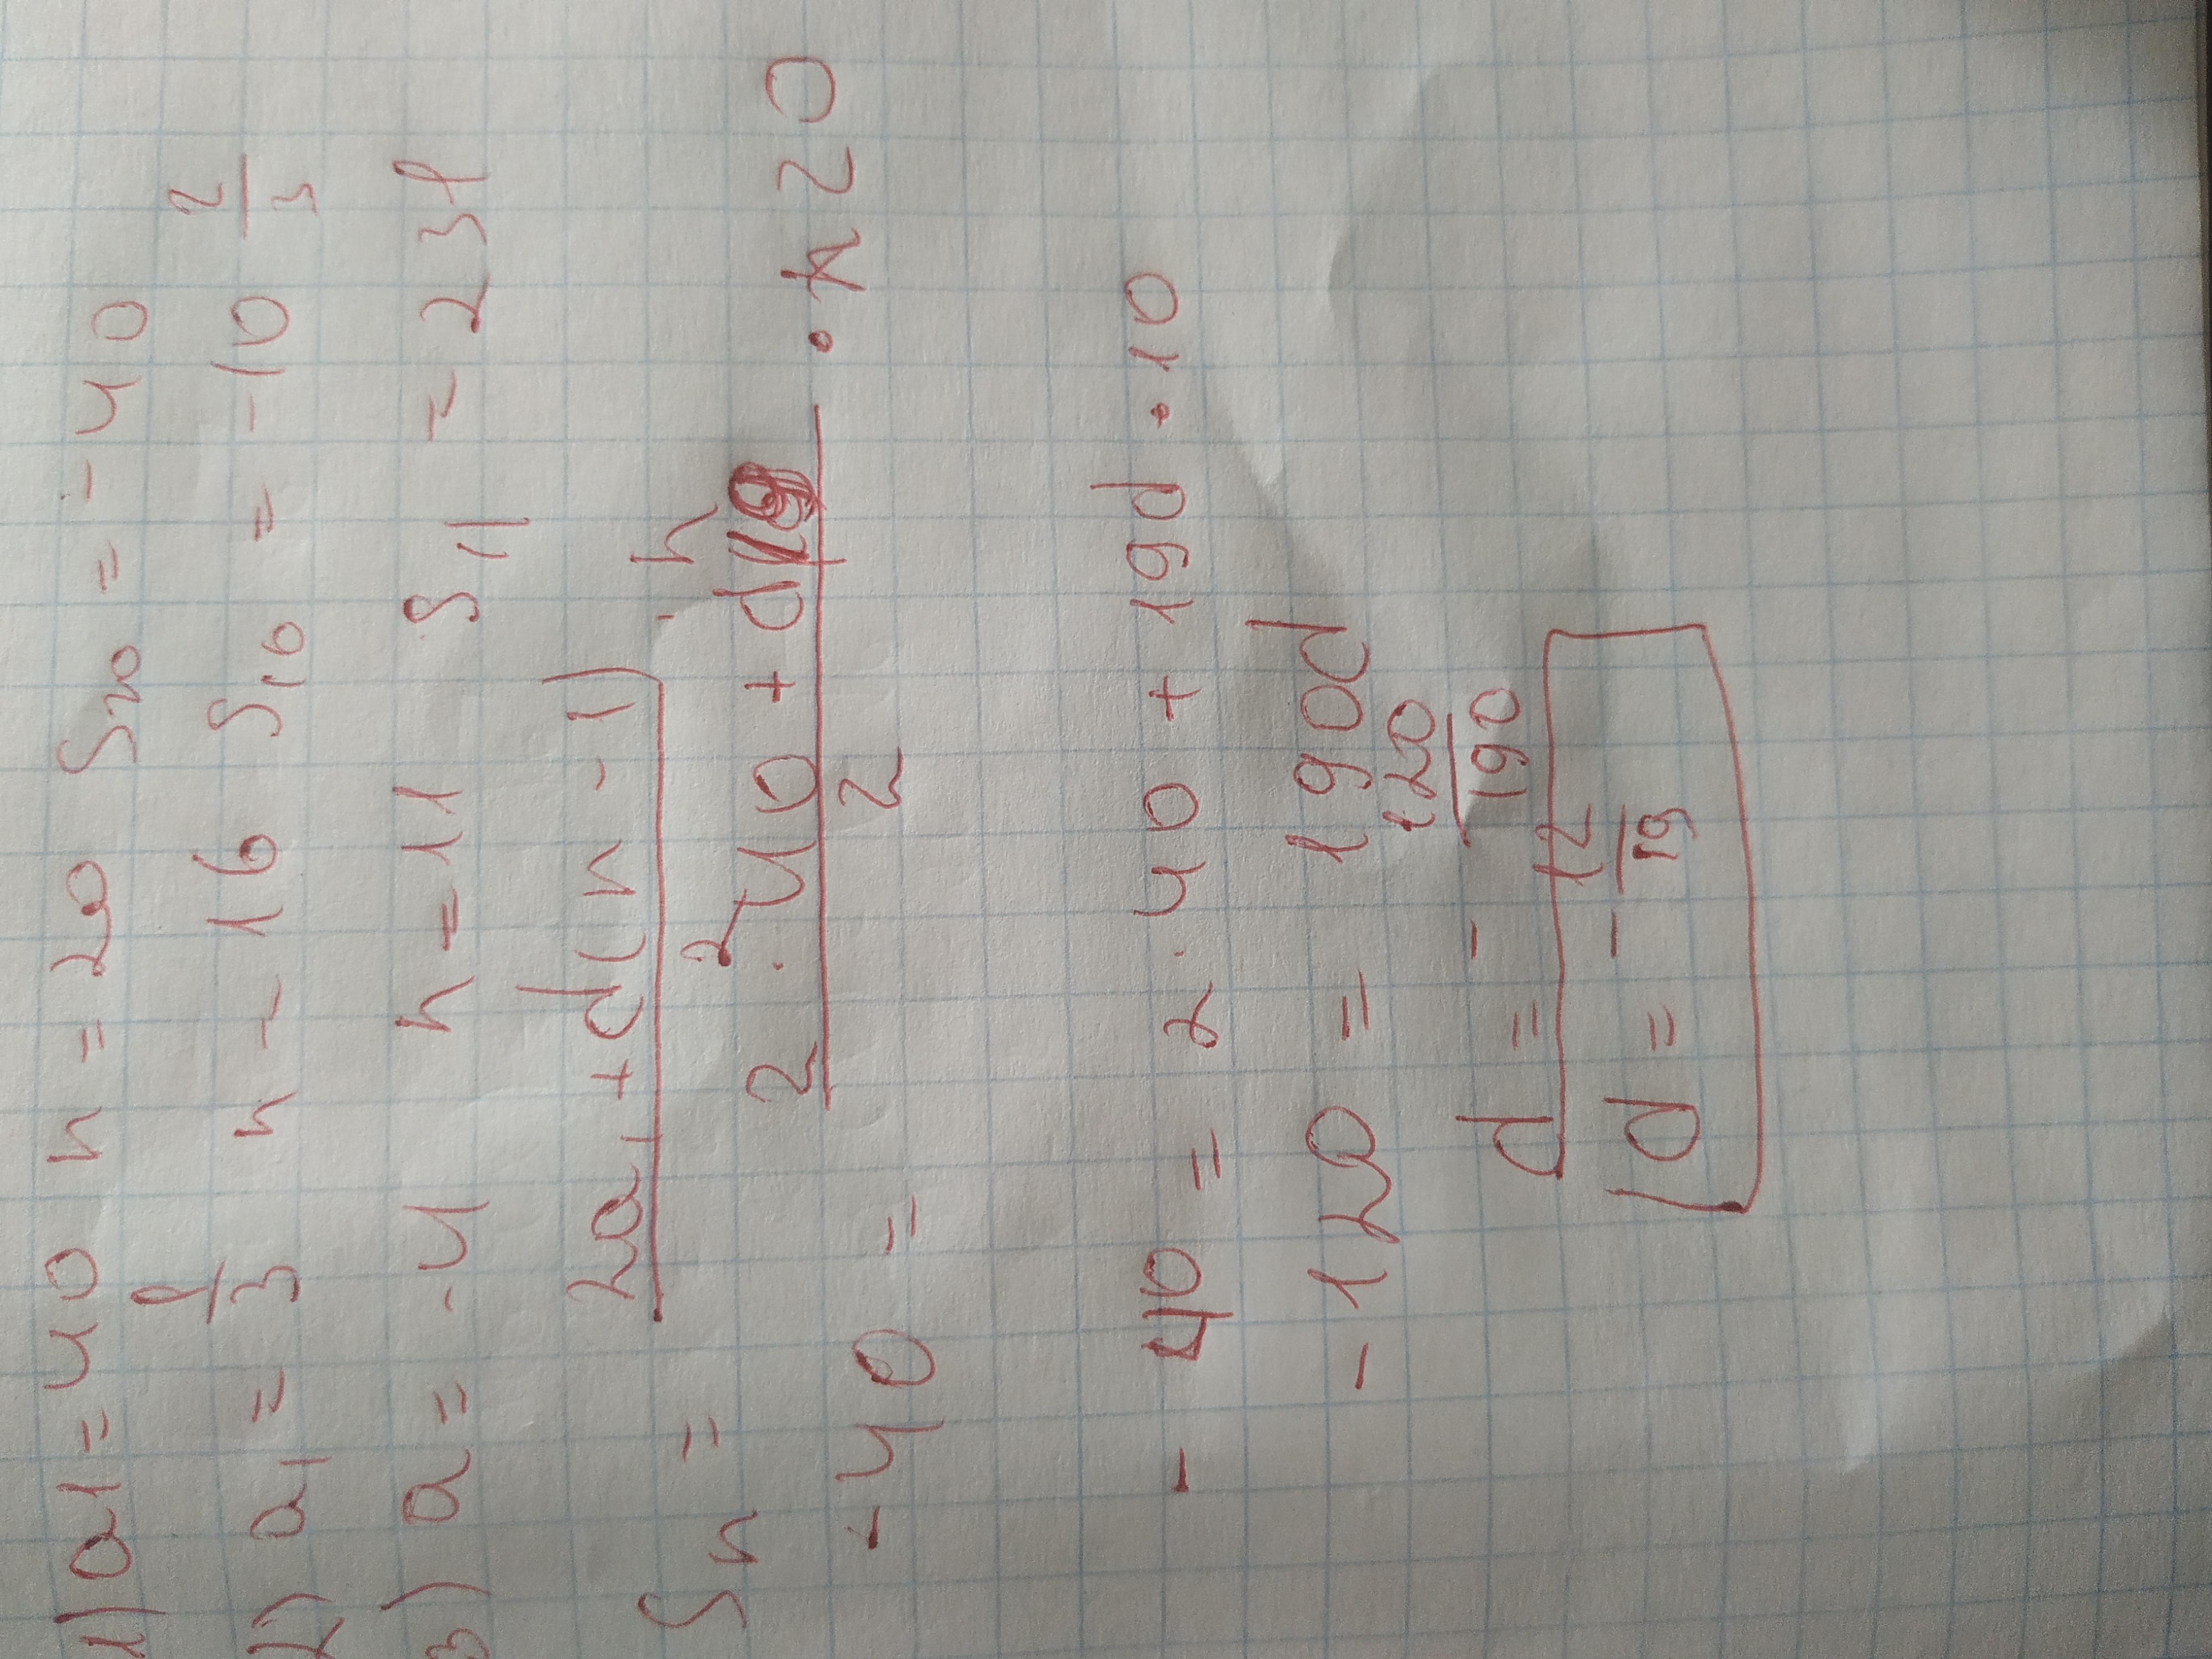 1) a1 = 40 n = 20 S20 = -40
2) a1 = 1/3 n - 16 S16 = -10 2/3
3) a = -4 n = 11 S11 = 231
Sn = (2a1 + d(n - 1))/2 · n
-40 = (2 · 40 + d19)/2 · 20
- 40 = 2 · 40 + 19d · 10
- 120 = 190d
d = - 120/190
d = - 12/19